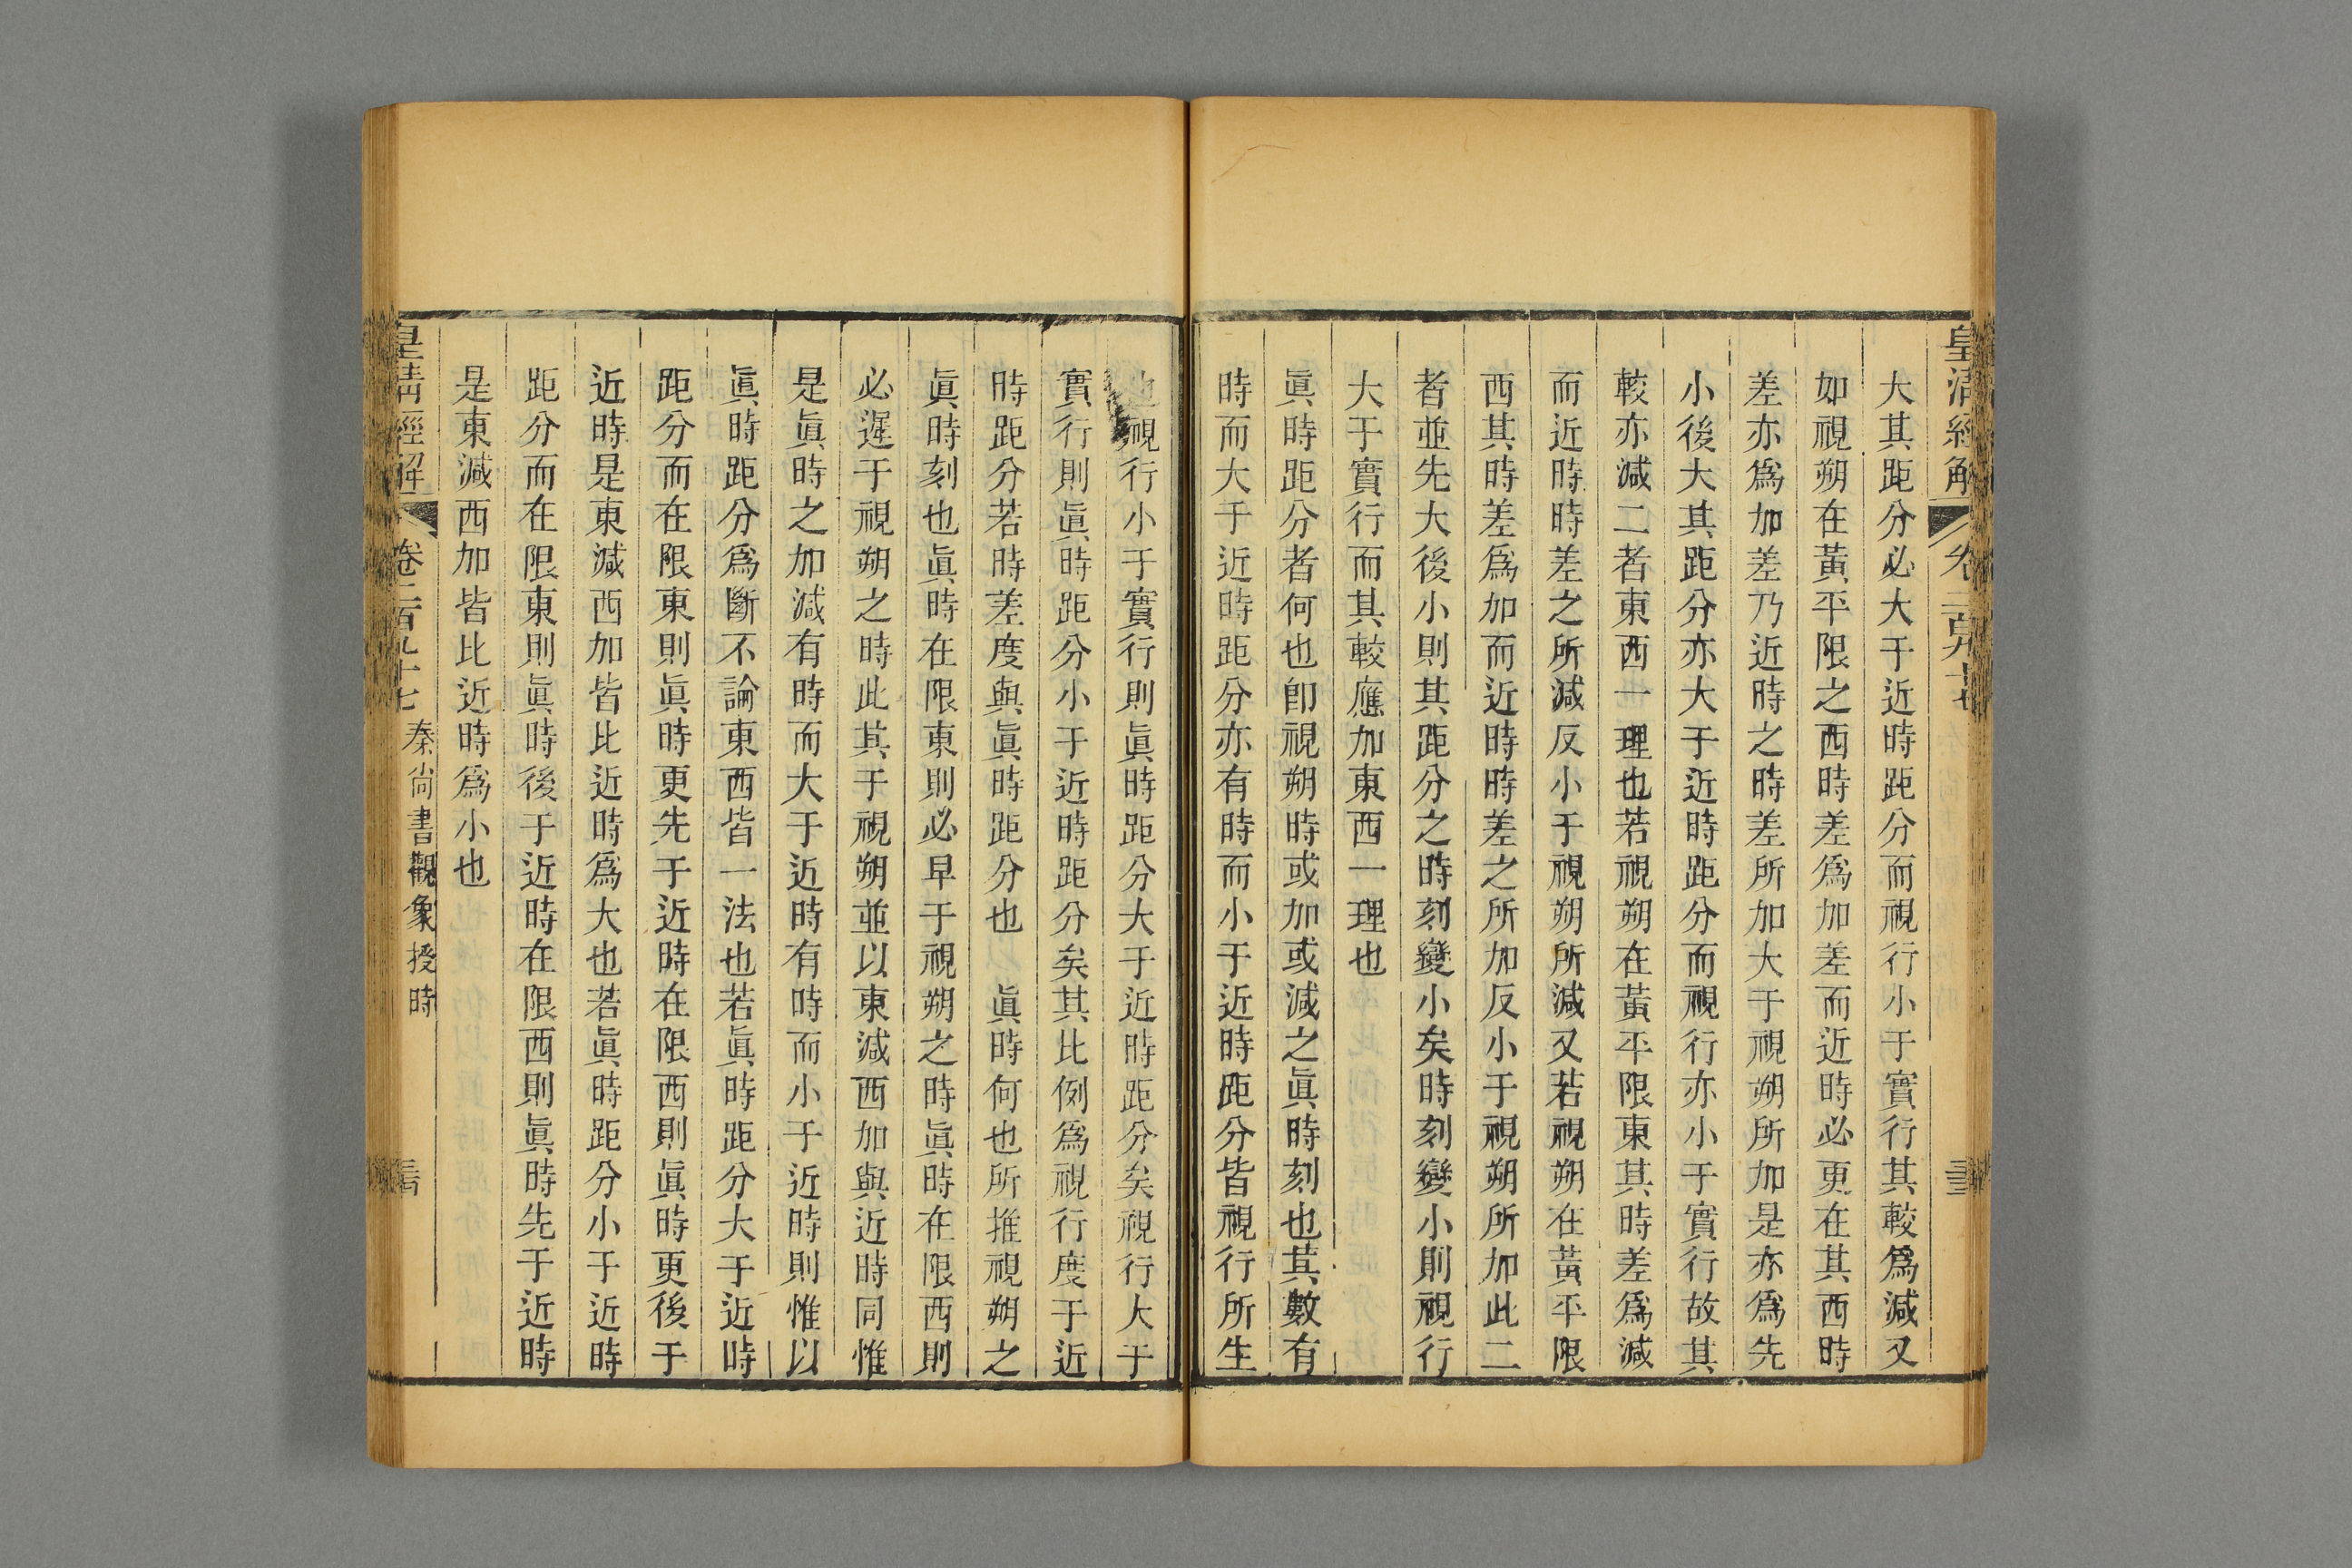 皇清經解
卷二百九十七
大其距分必大于近時距分而視行小于實行其較爲減又
如視朔在黃平限之西時差爲加差而近時必更在其西時
差亦爲加差乃近時之時差所加大于視朔所加是亦爲先
小後大其距分亦大于近時距分而視行亦小于實行故其
較亦減二者東西一理也若視朔在黃平限東其時差爲減
而近時時差之所減反小于視朔所減又若視朔在黃平限
西其時差爲加而近時時差之所加反小于視朔所加此二
者並先大後小則其距分之時刻變小矣時刻變小則視行
大于實行而其較應加東西一理也
眞時距分者何也卽視朔時或加或減之眞時刻也其數有
時而大于近時距分亦有時而小于近時距分皆視行所生
視行小于實行則眞時距分大于近時距分矣視行大于
實行則眞時距分小于近時距分矣其比例爲視行度于近
時距分若時差度與眞時距分也 眞時何也所推視朔之
眞時刻也眞時在限東則必早于視朔之時眞時在限西則
必遲于視朔之時此其于視朔並以東減西加與近時同惟
是眞時之加減有時而大于近時有時而小于近時則惟以
眞時距分爲斷不論東西皆一法也若眞時距分大于近時
距分而在限東則眞時更先于近時在限西則眞時更後于
近時是東減西加皆比近時爲大也若眞時距分小于近時
距分而在限東則眞時後于近時在限西則眞時先于近時
是東減西加皆比近時爲小也
皇清經解
卷二百九十七
秦尚書觀象授時